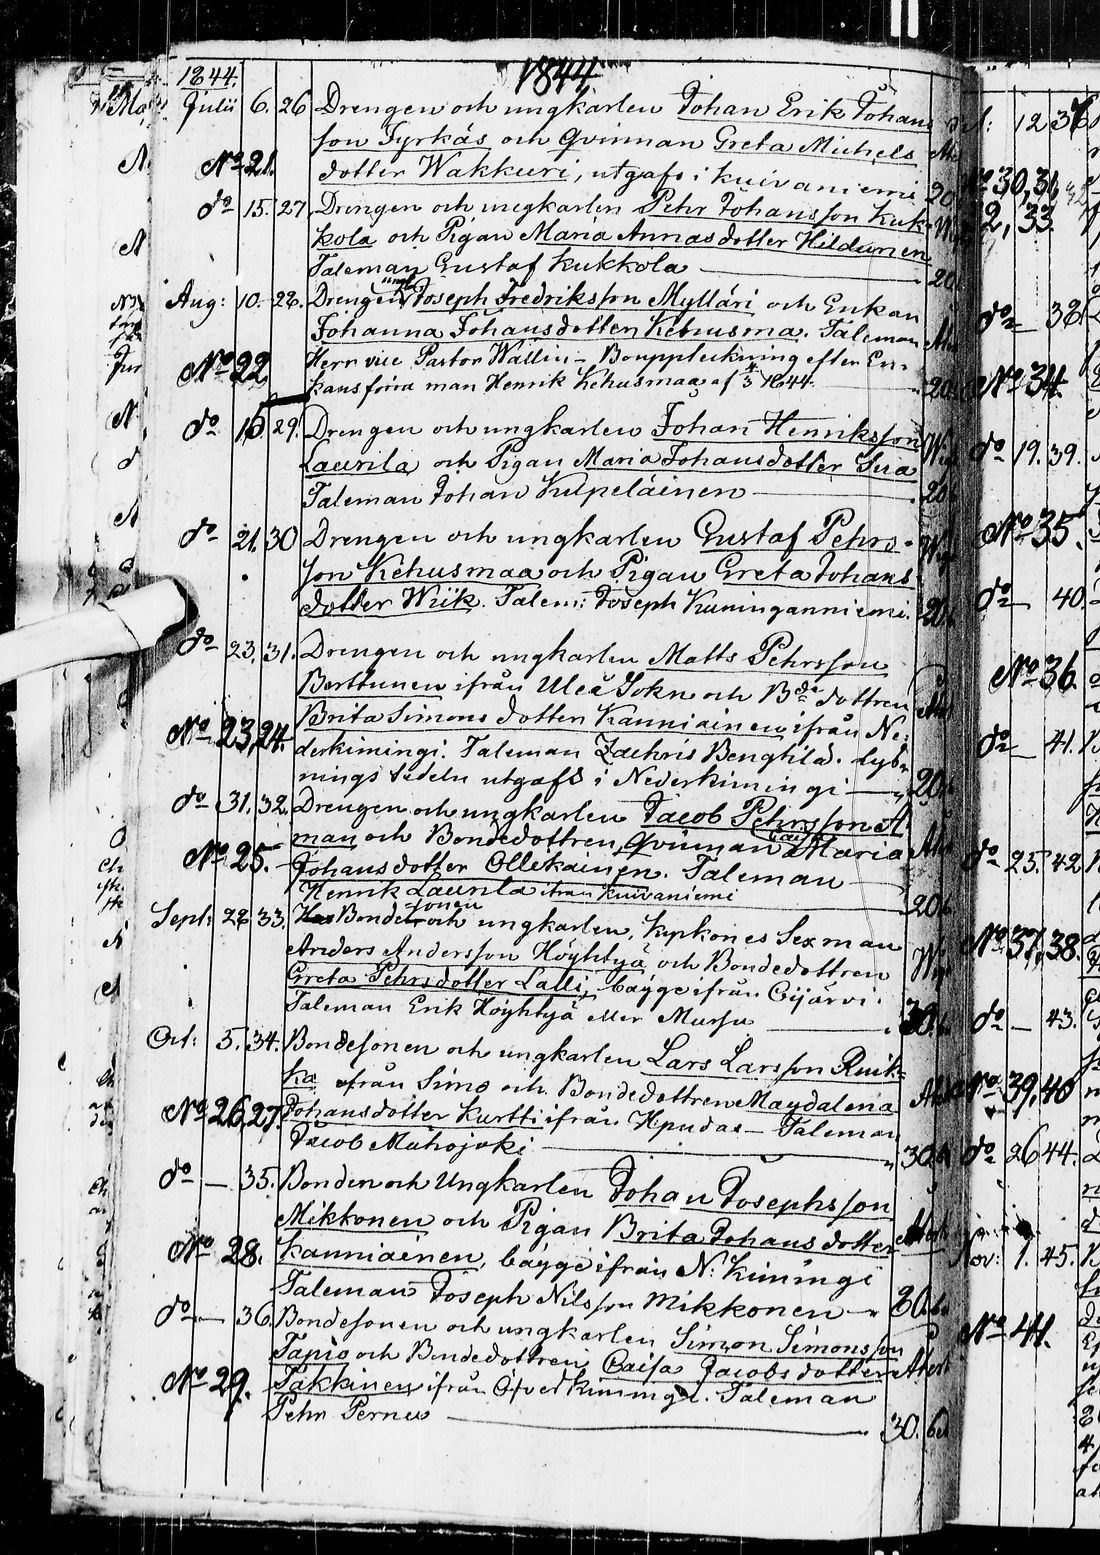 1844
1844.
Julii 6. 26 Drengen och ungkarlen Johan Erik Johans
son Tyrkäs och qvinnan Greta Michels
No 21. dotter Wakkuri, utgafs i Kuivaniemi 20
do 15. 27 Drengen och ungkarlen Pehr Johansson Kuk-
kola och Pigan Maria Annasdotter Hildunen
Taleman Gustaf Kukkola 20
Aug: 10. 28. Drengen ungk Joseph Fredriksson Mylläri och Enkan
Johanna Johansdotter Kehusmaa. Taleman
No 22 Herr vice Pastor Wallin - Bouppteckning efter En-
kans förra man Henrik Kehusmaa af 4/3 1844 20
do 15. 29. Drengen och ungkarlen Johan Henriksson
Laurila och Pigan Maria Johansdotter Sua
Taleman Johan Kulpeläinen 20
do 21. 30 Drengen och ungkarlen Gustaf Pehrs-
son Kehusmaa och Pigan Greta Johans
dotter Wiik. Talem: Joseph Kuninganniemi. 20
do 23. 31. Drengen och ungkarlen Matts Pehrsson
Berttunen ifrån Uleå Sokn och Bde dottren
No 23, 24. Brita Simons dotter Kanniainen ifrån Ne-
derkimingi. Taleman Zachris Benghild. Lys-
nings sedeln utgafs i Nederkimingi 20
do 31. 32. Drengen och ungkarlen Jacob Pehrsson A
man och Bondedottren qvinnan Caisa Maria
No 25. Johansdotter Ollekainen. Taleman
Henrik Laurila ifrån Kuivaniemi 20
Sept: 28. 33. Bondesonen och ungkarlen, Kyrkones Sexman
Anders Andersson Höyhtyä och Bondedottren
Greta Pehrsdotter Lalli, bägge ifrån Oijärvi.
Taleman Erik Höyhtyä eller Mursu 30.
Oct: 5. 34. Bondesonen och ungkarlen Lars Larsson Ruik-
ka ifrån Simo och Bondedottren Magdalena
No 26, 27. Johansdotter Kurtti ifrån Hpudas - Taleman
Jacob Muhojoki 30
do — 35. Bonden och Ungkarlen Johan Josephsson
Mikkonen och Pigan Brita Johansdotter
No 28. Kanniainen, bägge ifrån N: Kimingi
Taleman Joseph Nilsson Mikkonen 30
do — 36. Bondesonen och ungkarlen Simon Simonsson
Tapio och Bondedottren Caisa Jacobsdotter
No 29. Takkinen ifrån Öfverkimingi. Taleman
Pehr Pernu 30.
12 37
No 30, 31,
32, 33.
do 38
No 34.
do 19. 39.
No 35.
do — 40.
No 36.
do 41.
do 25. 42
No 37, 38.
do — 43.
No 39, 40
do 26 44.
Nov: 1. 45.
No 41.